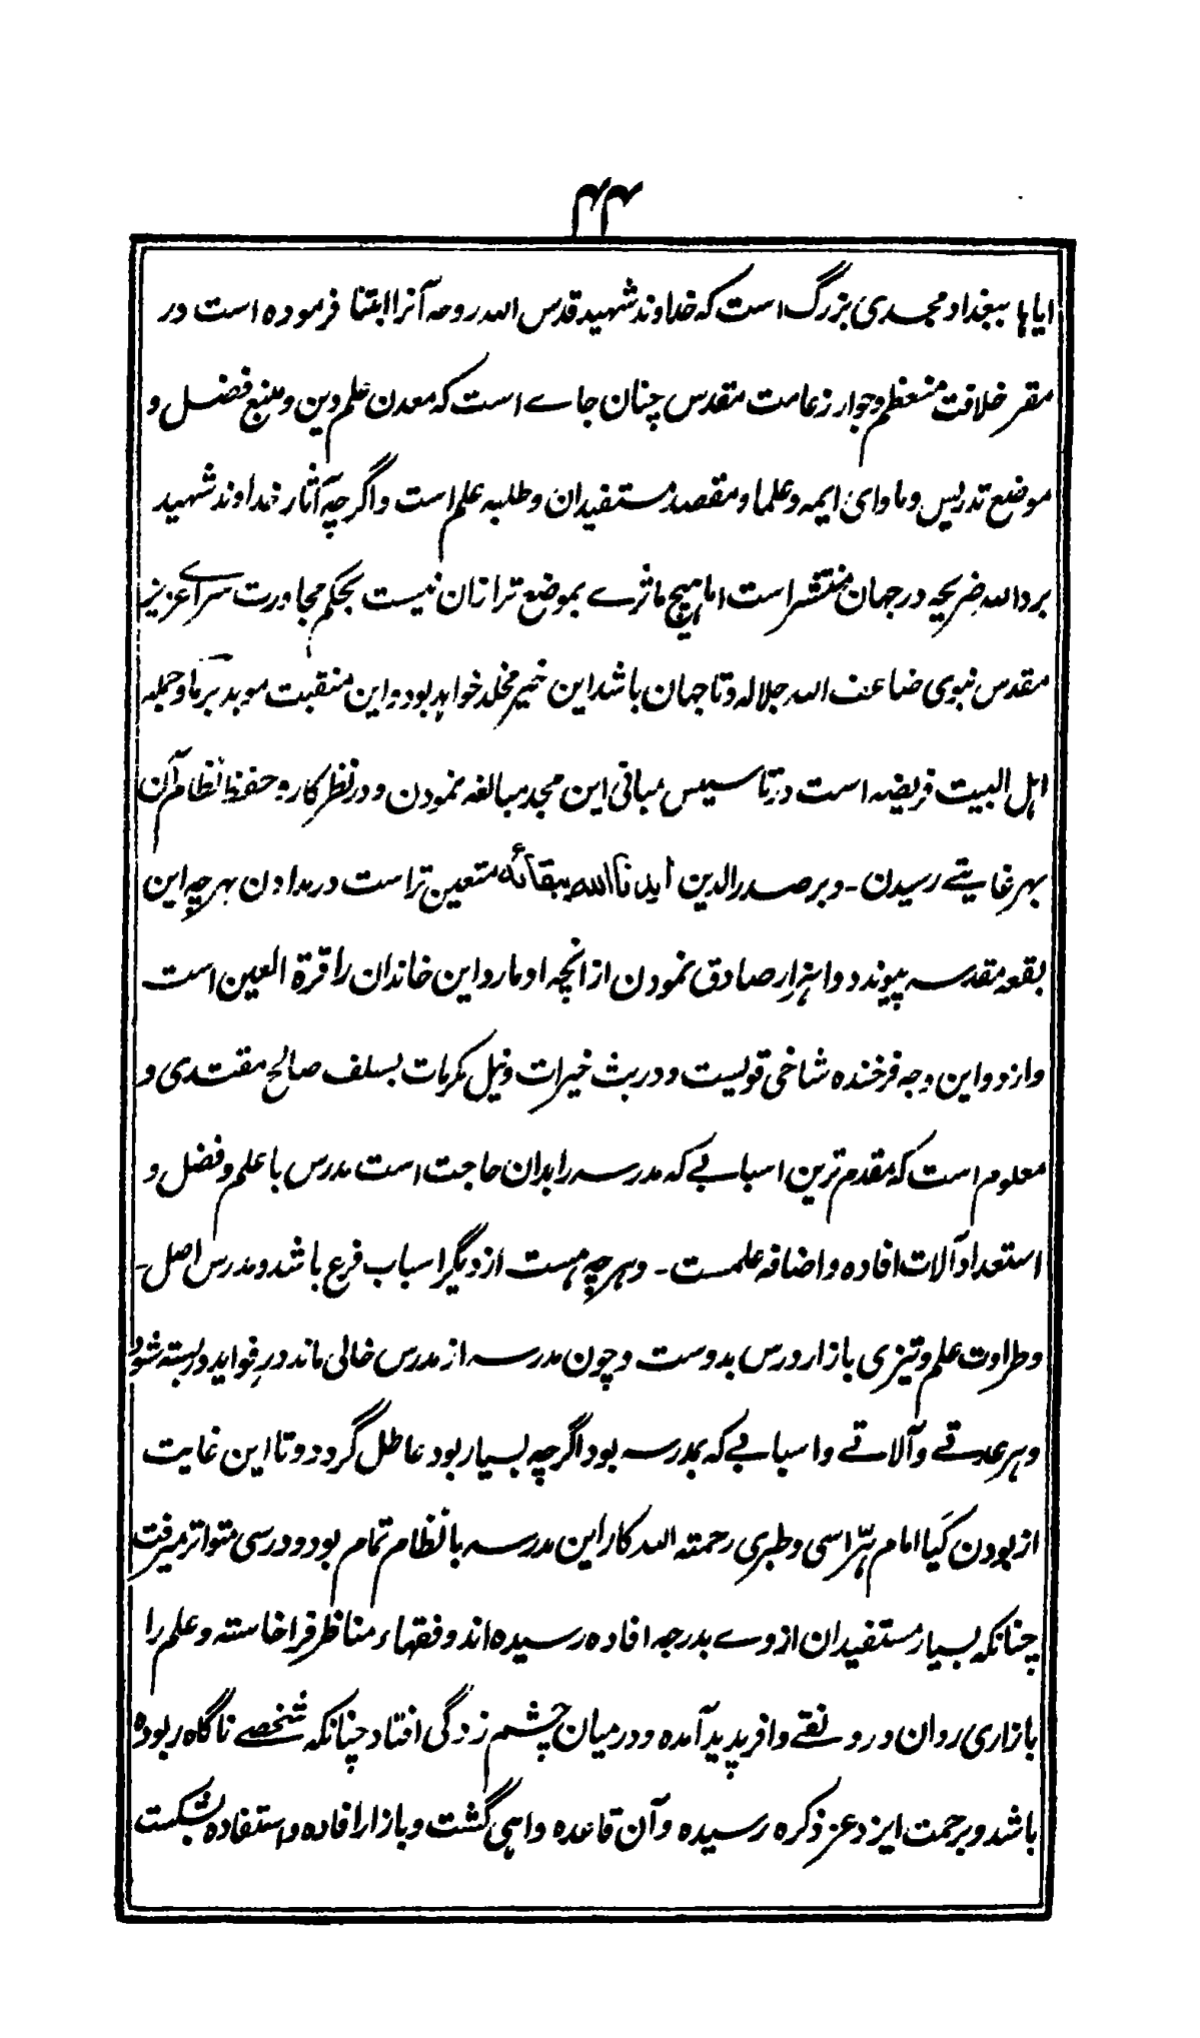 ۴۴
ایاها ببغداد مجدی بزرگ است که خداوند شهید قدس الله روحه آنرا ابتنا فرموده است در
مقر خلافت معظم و جوار زعامت مقدس چنان جاے است که معدن علم دین و منبع فضل و
موضع تدریس و ماوای ایمه و علما و مقصد مستفیدان و طلبه علم است و اگرچه آثار خداوند شهید
برد الله ضریحه در جهان منتشر است اما هیچ ماثرے بموضع تر ازان نیست بحکم مجاورت سراے عزیز
مقدس نبوی ضاعف الله جلاله و تا جهان باشد این خیر مخلد خواهد بود و این منقبت موبد برما و جمله
اهل البیت فریضه است در تاسیس مبانی این مجد مبالغه نمودن و در نظر کار و حفظ نظام آن
بهر غایتے رسیدن - و بر صدر الدین أیدنا الله ببقائه متعین تر است در مدادن بهرچه این
بقعه مقدسه پیوندد و اهزار صادق نمودن از انچه او مارد این خاندان را قرة العین است
و از دو این وجه فرخنده شاخی قویست و در بث خیرات و نیل مکرمات بسلف صالح مقتدی و
معلوم است که مقدم ترین اسبابے که مدرسه را بدان حاجت است مدرس با علم و فضل و
استعداد و آلات افاده و اضافه علمست - و هرچه هست از دیگر اسباب فرع باشد و مدرس اصل -
و طراوت علم و تیزی بازار درس بدوست و چون مدرسه از مدرس خالی ماند در فواید در بسته شود
و هر عدتے و آلاتے و اسبابے که بمدرسه بود اگرچه بسیار بود عاطل گردد و تا این غایت
از بودن کَیا امام هرّاسی و طبری رحمته الله کار این مدرسه با نظام تمام بود و درسی متواتر میرفت
چنانکه بسیار مستفیدان از وے بدرجه افاده رسیده اند و فقهاء مناظر فرا خاسته و علم را
بازاری روان و رونقے وافر پدید آمده و در میان چشم زدگی افتاد چنانکه شخصے ناگاه ربوده
باشد و برحمت ایزد عز ذکره رسیده و آن قاعده واهی گشت و بازار افاده و استفاده بشکست